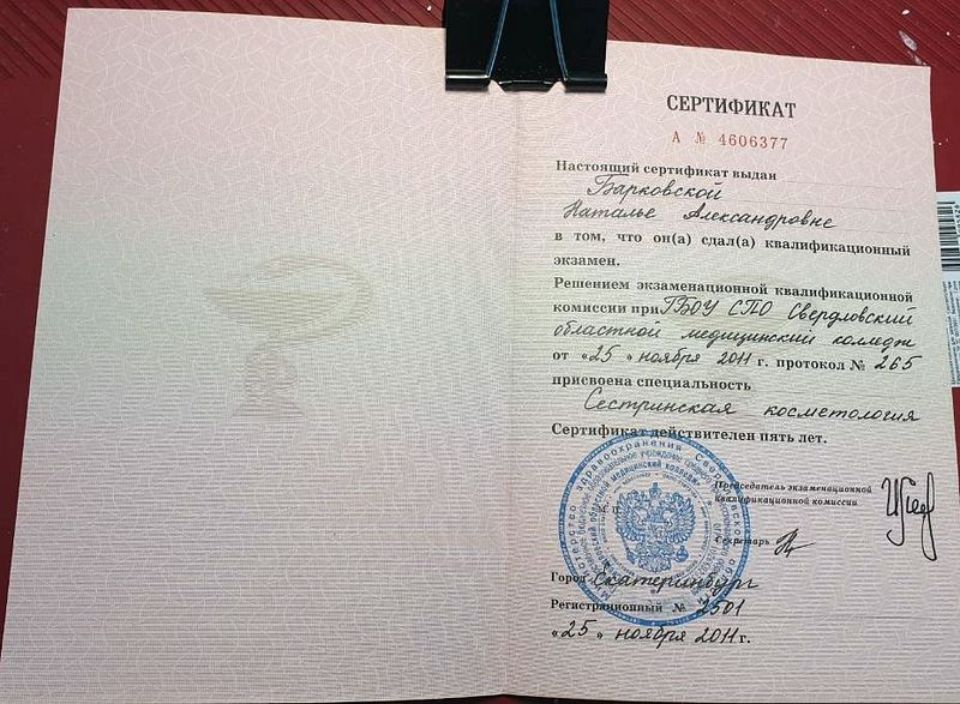 СЕРТИФИКАТ
А № 4606377
Настоящий сертификат выдан
Барковской
Наталье Александровне
в том, что он(а) сдал(а) квалификационный
экзамен.
Решением экзаменационной квалификационной
комиссии при ГБОУ СПО Свердловский
областной медицинский колледж
от «25» ноября 2011 г. протокол № 265
присвоена специальность
Сестринская косметология
Сертификат действителен пять лет.
Председатель экзаменационной
квалификационной комиссии
М.П.
Секретарь
Город Екатеринбург
Регистрационный № 2501
«25» ноября 2011 г.